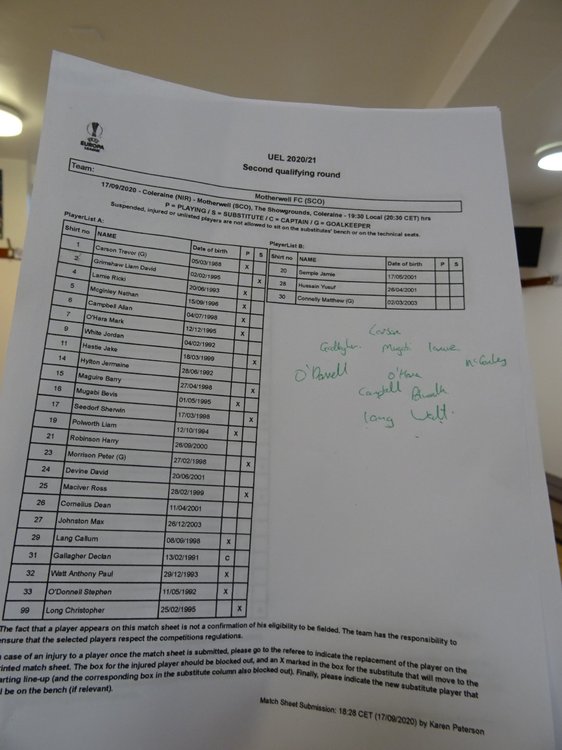 UEFA
EUROPA
LEAGUE
UEL 2020/21
Second qualifying round
Team: Motherwell FC (SCO)
17/09/2020 - Coleraine (NIR) - Motherwell (SCO), The Showgrounds, Coleraine - 19:30 Local (20:30 CET) hrs
P = PLAYING / S = SUBSTITUTE / C = CAPTAIN / G = GOALKEEPER
Suspended, injured or unlisted players are not allowed to sit on the substitutes' bench or on the technical seats.
PlayerList A:
Shirt no NAME Date of birth P S
1 Carson Trevor (G) 05/03/1988 X
2 Grimshaw Liam David 02/02/1995 X
4 Lamie Ricki 20/06/1993 X
5 Mcginley Nathan 15/09/1996 X
6 Campbell Allan 04/07/1998 X
7 O'Hara Mark 12/12/1995 X
9 White Jordan 04/02/1992
11 Hastie Jake 18/03/1999 X
14 Hylton Jermaine 28/06/1992
15 Maguire Barry 27/04/1998 X
16 Mugabi Bevis 01/05/1995 X
17 Seedorf Sherwin 17/03/1998 X
19 Polworth Liam 12/10/1994 X
21 Robinson Harry 26/09/2000
23 Morrison Peter (G) 27/02/1998 X
24 Devine David 20/06/2001
25 Maciver Ross 28/02/1999 X
26 Cornelius Dean 11/04/2001
27 Johnston Max 26/12/2003
29 Lang Callum 08/09/1998 X
31 Gallagher Declan 13/02/1991 C
32 Watt Anthony Paul 29/12/1993 X
33 O'Donnell Stephen 11/05/1992 X
99 Long Christopher 25/02/1995 X
PlayerList B:
Shirt no NAME Date of birth P S
20 Semple Jamie 17/05/2001
28 Hussain Yusuf 26/04/2001
30 Connelly Matthew (G) 02/03/2003
Carson
Gallagher Mugabi Lamie
O'Donnell O'Hara McGinley
Campbell
Long Watt
The fact that a player appears on this match sheet is not a confirmation of his eligibility to be fielded. The team has the responsibility to
ensure that the selected players respect the competitions regulations.
n case of an injury to a player once the match sheet is submitted, please go to the referee to indicate the replacement of the player on the
rinted match sheet. The box for the injured player should be blocked out, and an X marked in the box for the substitute that will move to the
arting line-up (and the corresponding box in the substitute column also blocked out). Finally, please indicate the new substitute player that
ll be on the bench (if relevant).
Match Sheet Submission: 18:28 CET (17/09/2020) by Karen Paterson